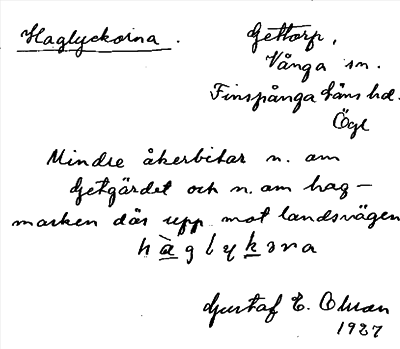 Haglyckorna.
Gettorp,
Vånga sn.
Finspånga läns hd.
Ögl
Mindre åkerbitar n. om
Getgärdet och n. om hag-
marken där upp mot landsvägen
hàglykɔra
Gustaf E. Olson
1927